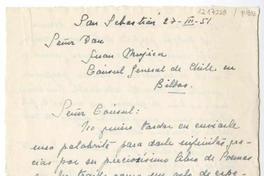 San Sebastián 27-III-51
Señor Don
Juan Mujica
Cónsul General de Chile en
Bilbao.
Señor Cónsul:
No quiero tardar en enviarle
una palabrita para darle infinitas gra-
cias por su preciosísimo libro de Poemas